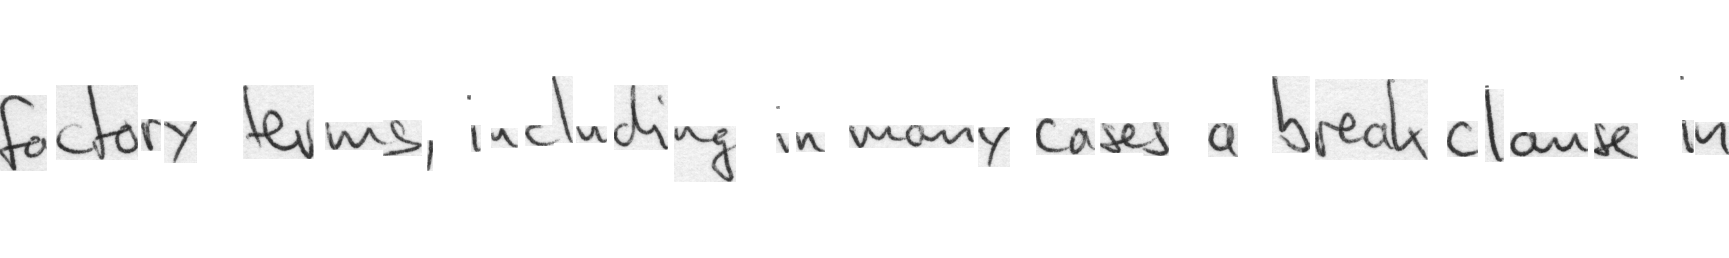 factory terms, including in many cases a break clause in